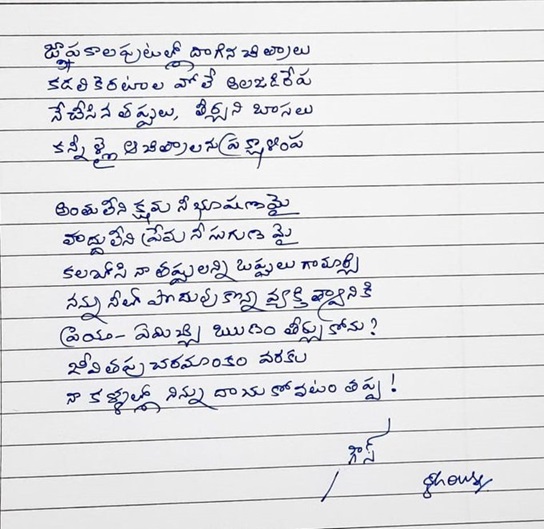 జ్ఞాపకాలపుటల్లో దాగిన చిత్రాలు
కడలి కెరటాల వోలే అలజడిరేప
నేచేసిన తప్పులు, తీర్చని బాసలు
కన్నీళ్ళై ఆ చిత్రాలను ప్రక్షాళింప
అంతులేని క్షమ నీ భూషణమై
హద్దులేని ప్రేమ నీ సుగుణమై
కలబోసి నా తప్పులన్ని ఒప్పులు గామార్చి
నన్ను నీలో పొదువుకొన్న వ్యక్తిత్వానికి
ప్రియా- ఏమిచ్చి ఋణం తీర్చుకోను?
జీవితపు చరమాంకం వరకు
నా కళ్ళల్లో నిన్ను దాచుకోవటం తప్ప!
గౌస్